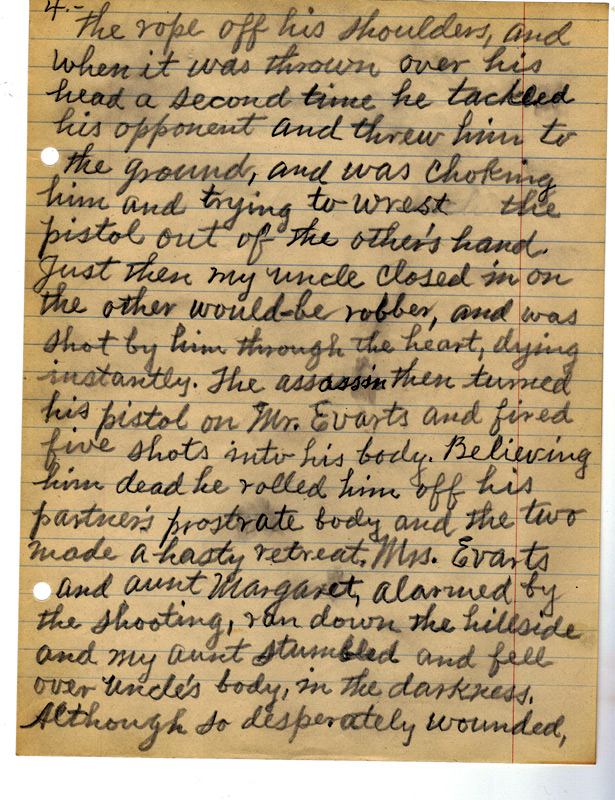 4.-
the rope off his shoulders, and
when it was thrown over his
head a second time he tackled
his opponent and threw him to
the ground, and was choking
him and trying to wrest the
pistol out of the other's hand.
Just then my uncle closed in on
the other would-be robber, and was
shot by him through the heart, dying
instantly. The assassin then turned
his pistol on Mr. Evarts and fired
five shots into his body. Believing
him dead he rolled him off his
partner's prostrate body and the two
made a hasty retreat. Mrs. Evarts
and aunt Margaret, alarmed by
the shooting, ran down the hillside
and my aunt stumbled and fell
over uncle's body, in the darkness.
Although so desperately wounded,